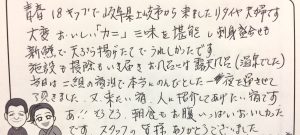 青春18キップで岐阜県土岐市から来ましたリタイヤ夫婦です
大変おいしい"カニ"三昧を堪能し刺身盛合せも
新鮮で天ぷらも揚げたてでうれしかったです
施設も掃除もいき届きお風呂には露天風呂(温泉でした)
当日は二組の宿泊で本当にのんびりとした一夜を過させて
て頂きました。又来たい宿、人に紹介してあげたい宿です
あ!!そうそう 朝食もお腹いっぱいおいしかった
です スタッフの皆様ありがとうございました